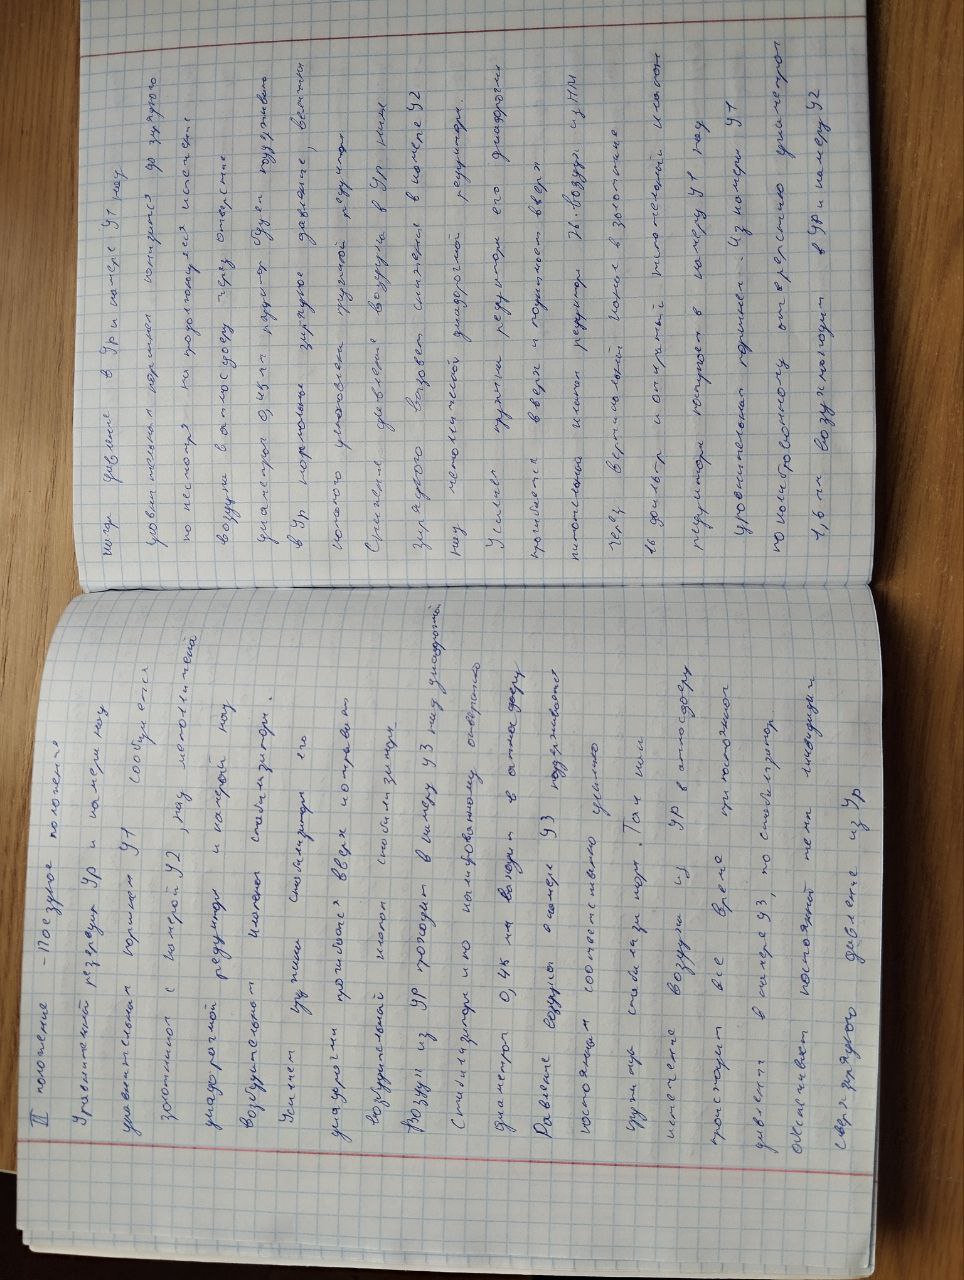 II положение - Поездное положение
Уравнительный резервуар УР и камера над
уравнительным поршнем У1 сообщается
золотником с камерой У2, над металлической
диафрагмой редуктора и камерой над
возбудительным клапаном стабилизатора.
Усилием пружины стабилизатора его
диафрагма прогибается вверх и отрывает
возбудительный клапан стабилизатора
Воздух из УР проходит в камеру У3 над диафрагмой
стабилизатора и по калиброванному отверстию
диаметром 0,45 мм выходит в атмосферу
Равление воздуха в камере У3 поддерживается
постоянным соответственно усилию
пружины стабилизатора. Так как
истечение воздуха из УР в атмосферу
происходит все время при постоянном
давлении в камере У3, то стабилизатор
обеспечивает постоянный темп ликвидации
сверхзарядного давления из УР
когда давление в УР и камере У1 над
уравнительным поршнем понизится до зарядного
то несмотря на продолжающееся истечение
воздуха в атмосферу через отверстие
диаметром 0,45мм редуктор будет поддерживать
в УР нормальное зарядное давление, величина
которого установлена пружиной редуктора
Снижение давления воздуха в УР ниже
зарядного вызовет снижение в камере У2
над металической диафрагмой редуктора.
Усилием пружины редуктора его диафрагма
прогибается вверх и поднимает вверх
питательный клапан редуктора 26. Воздух из ПМ
через вертикальный канал в золотнике
16 фильтр и открытый питательный клапан
редуктора поступает в камеру У1 над
уравнительным поршнем. Из камеры У1
по калиброванному отверстию диаметром
1,6 мм воздух проходит в УР и камеру У2